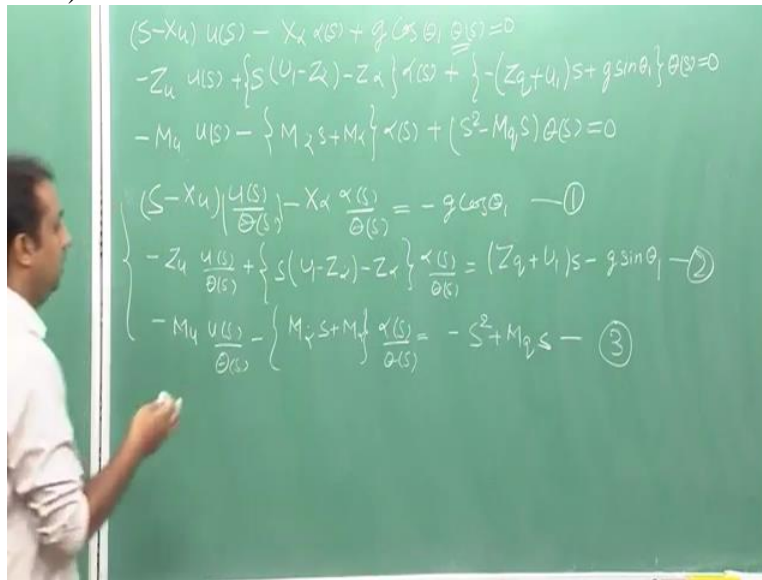 (S-Xu) u(s) - Xα α(s) + g Cosθ₁ θ(s)=0
-Zu u(s) + {S(U₁-Zα̇)-Zα} α(s) + {-(Zq+U₁)s + g sinθ₁} θ(s)=0
-Mu u(s) - {Mα̇ s+Mα} α(s) + (S²-Mq s) θ(s)=0
(S-Xu) u(s)/θ(s) - Xα α(s)/θ(s) = - g cosθ₁ — ①
-Zu u(s)/θ(s) + {s(U₁-Zα̇)-Zα} α(s)/θ(s) = (Zq+U₁)s - g sinθ₁ — ②
-Mu u(s)/θ(s) - {Mα̇ s+Mα} α(s)/θ(s) = - s²+Mq s — ③